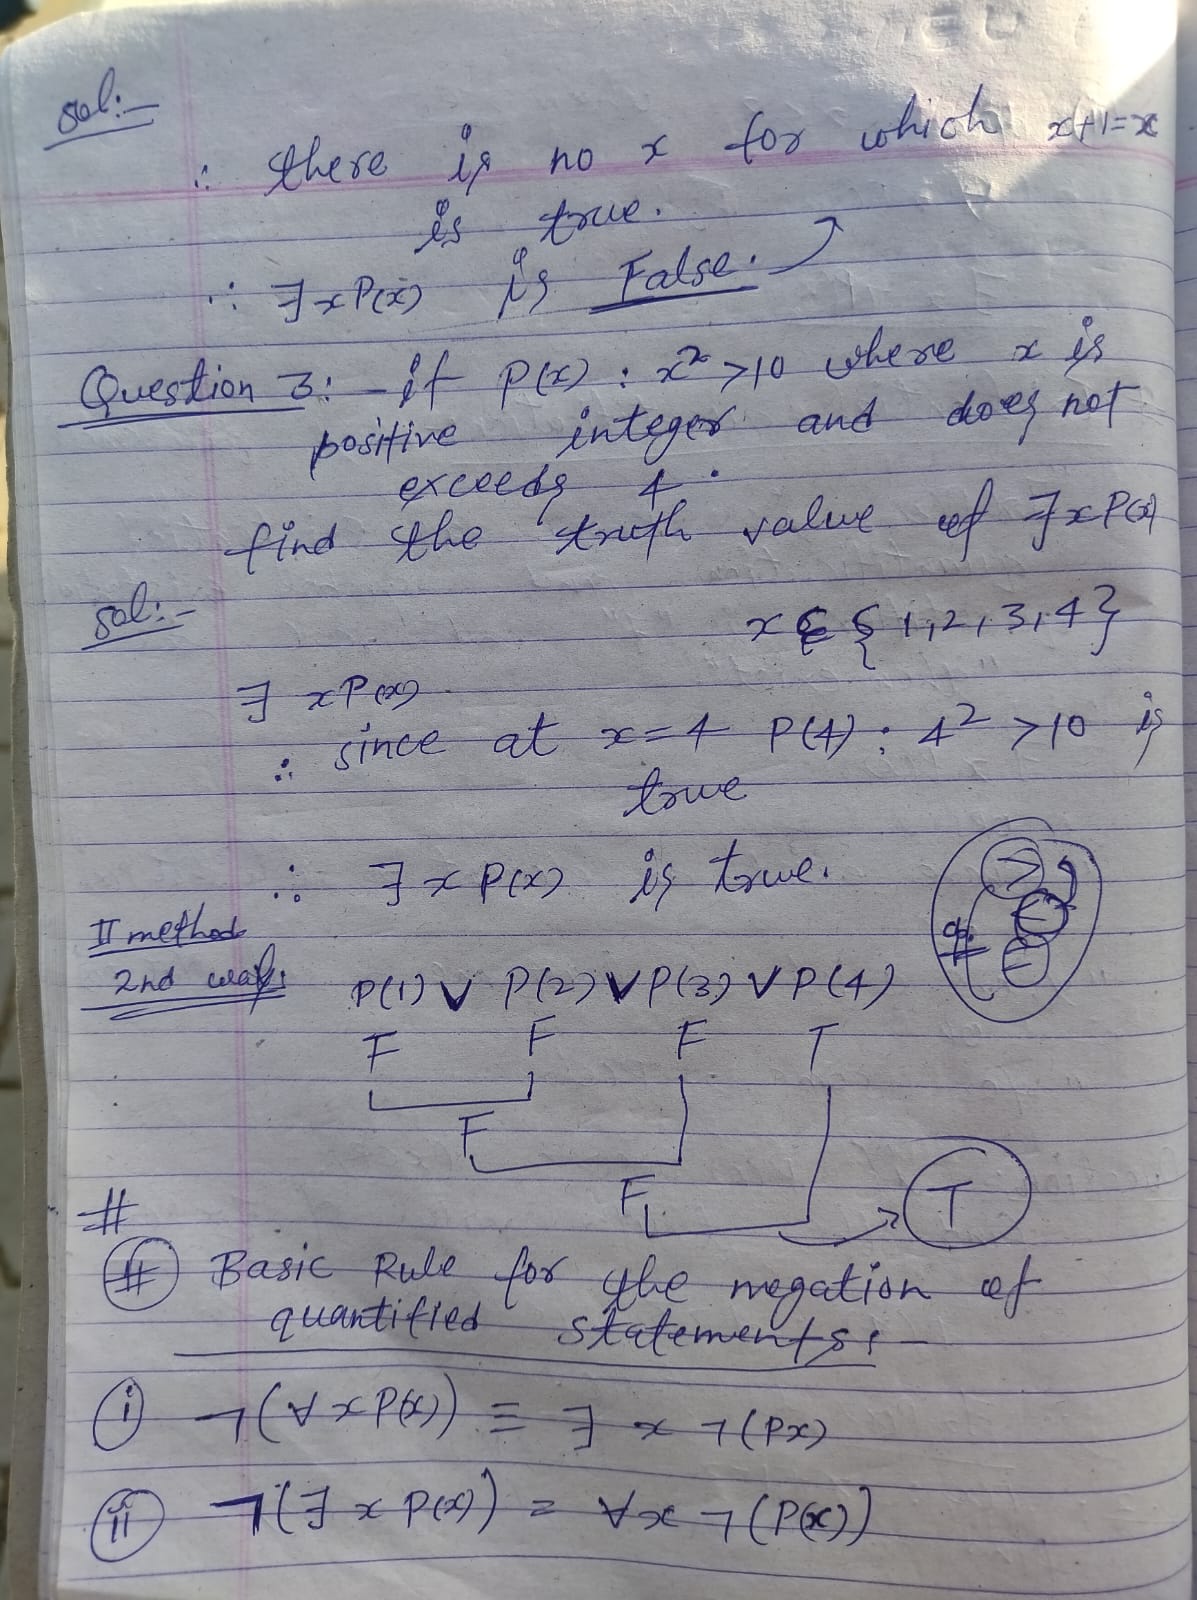 sol:-
∴ there is no x for which x+1=x
is true.
∴ ∃xP(x) is False.
Question 3: - if P(x) : x² >10 where x is
positive integer and does not
exceeds 4.
find the truth value of ∃xP(x)
sol:-
x ∈ { 1, 2, 3, 4 }
∃ xP(x)
∴ since at x=4 P(4) : 4² >10 is
true
∴ ∃x P(x) is true.
II method
2nd way:
P(1) ∨ P(2) ∨ P(3) ∨ P(4)
F F F T
F
F T
#
# Basic Rule for the negation of
quantified statements:-
i ¬(∀xP(x)) ≡ ∃ x ¬(Px)
ii ¬(∃ x P(x)) = ∀x ¬(P(x))